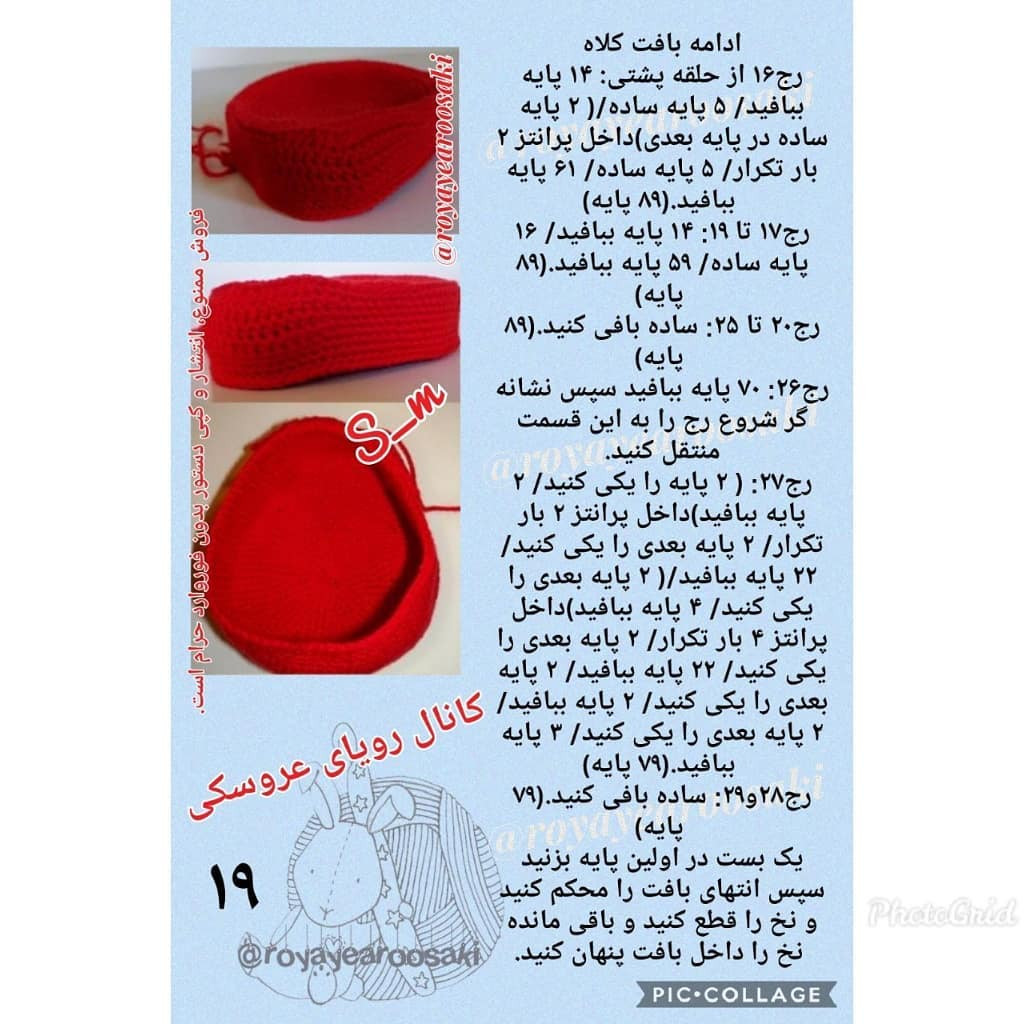 ادامه بافت کلاه
رج۱۶ از حلقه پشتی: ۱۴ پایه
ببافید/ ۵ پایه ساده/( ۲ پایه
ساده در پایه بعدی)داخل پرانتز ۲
بار تکرار/ ۵ پایه ساده/ ۶۱ پایه
ببافید.(۸۹ پایه)
رج۱۷ تا ۱۹: ۱۴ پایه ببافید/ ۱۶
پایه ساده/ ۵۹ پایه ببافید.(۸۹
پایه)
رج۲۰ تا ۲۵: ساده بافی کنید.(۸۹
پایه)
رج۲۶: ۷۰ پایه ببافید سپس نشانه
گر شروع رج را به این قسمت
منتقل کنید.
رج۲۷: ( ۲ پایه را یکی کنید/ ۲
پایه ببافید)داخل پرانتز ۲ بار
تکرار/ ۲ پایه بعدی را یکی کنید/
۲۲ پایه ببافید/( ۲ پایه بعدی را
یکی کنید/ ۴ پایه ببافید)داخل
پرانتز ۴ بار تکرار/ ۲ پایه بعدی را
یکی کنید/ ۲۲ پایه ببافید/ ۲ پایه
بعدی را یکی کنید/ ۲ پایه ببافید/
۲ پایه بعدی را یکی کنید/ ۳ پایه
ببافید.(۷۹ پایه)
رج۲۸و۲۹: ساده بافی کنید.(۷۹
پایه)
یک بست در اولین پایه بزنید
سپس انتهای بافت را محکم کنید
و نخ را قطع کنید و باقی مانده
نخ را داخل بافت پنهان کنید.
@royayearoosaki
@royayearoosaki
@royayearoosaki
@royayearoosaki
S_m
فروش ممنوع، انتشار و کپی دستور بدون فوروارد حرام است.
کانال رویای عروسکی
۱۹
@royayearoosaki
PhotoGrid
PIC•COLLAGE